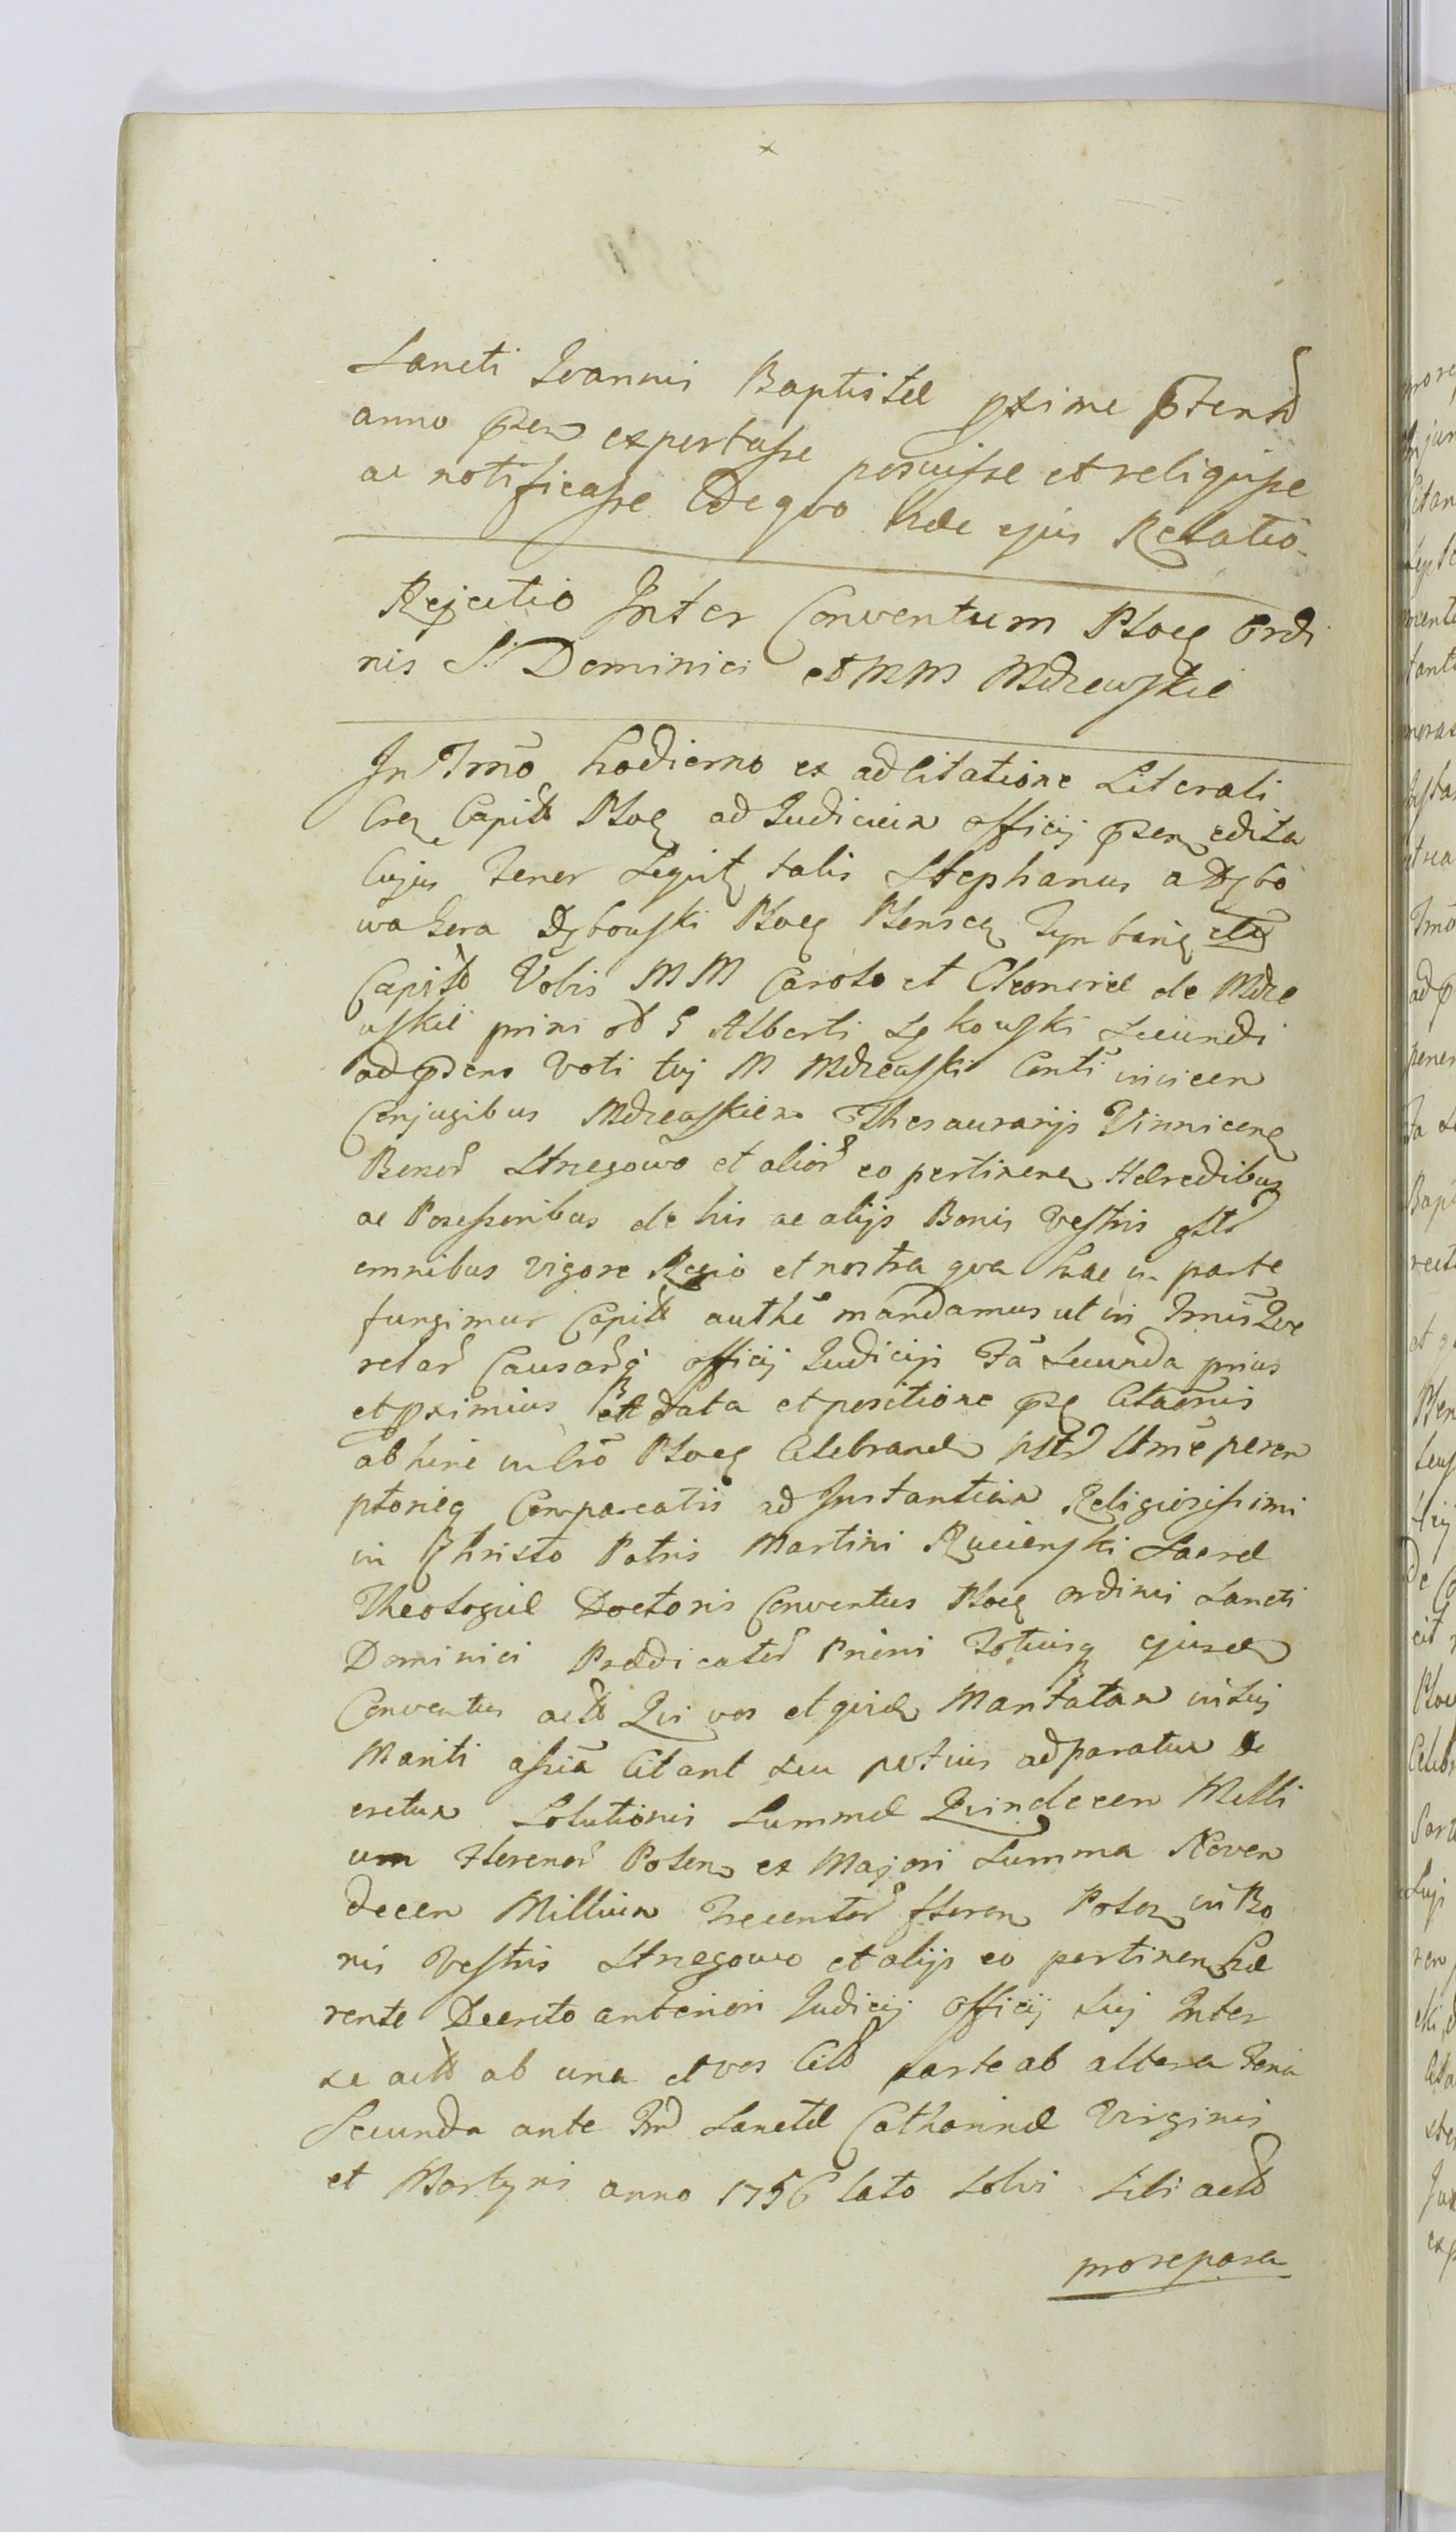 Sancti Joannis Baptistæ pxime pteriti
anno pnti exportasse posuisse et reliquisse
ac notificasse De quo hæc ejus Relatio
Rejectio Inter Conventum Ploceñ Ordi
nis S. Dominici et MM Mdzewskie
In Tmō hodierno ex ad Citatione Literali
Crē Capitł Ploceñ ad Judicium officij pñtem edita
Cujus Tenor Sequit talis Stephanus a Dębo
wa Gora Dębowski Ploceñ
Capitts Vobis MM Carolo et Eleonoræ de Mdze
wskie primi ad Alberti Łękowski Secundi
ad pñtens Voti tuj M Mdzewski invicem
Conjugibus Mdzewskiem Thesaurarijs Vinniceñ
Bonor Strzegowo et alior eo pertineñ Hæredibus
ac Possessoribus de his ac alijs Bonis Vestris
omnibus vigore Regio et nostra qva hac in parte
fungimur Capitł authē mandamus ut in Tmis Qve
relar Causarq officij Judicijs Fa Secunda prius
et pximius a data et positione pñtis Citaōnis
ab hinc in Crō Ploceñ Celebrand peren
ptorieq Compareatis ad Instantiam Religiosissimi
in Christo Patris Martini Rucienski Sacræ
Theologiæ Doctoris Conventus Ploceñ ordinis Sancti
Dominici Prædicator Prioris Totiusq ejusdem
Conventus acts Qui vos et quidem Maritatam in tuj
Mariti assia Citant seu potius ad paratum de
cretum Solutionis Summæ Quindecem Milli
um Florenor Polon ex Majori Summa Noven
decem Millium Trecentor floren Polon in Bo
nis Vestris Strzegowo et alijs eo pertineñ hæ
rente Decreto anteriori Judicij officij Suj Inter
se acts ab una et vos Cits parte ab altera Feria
Secunda ante Sanctæ Catharinæ Virginis
et Martyris anno 1756 lato Solvi Sibi acts